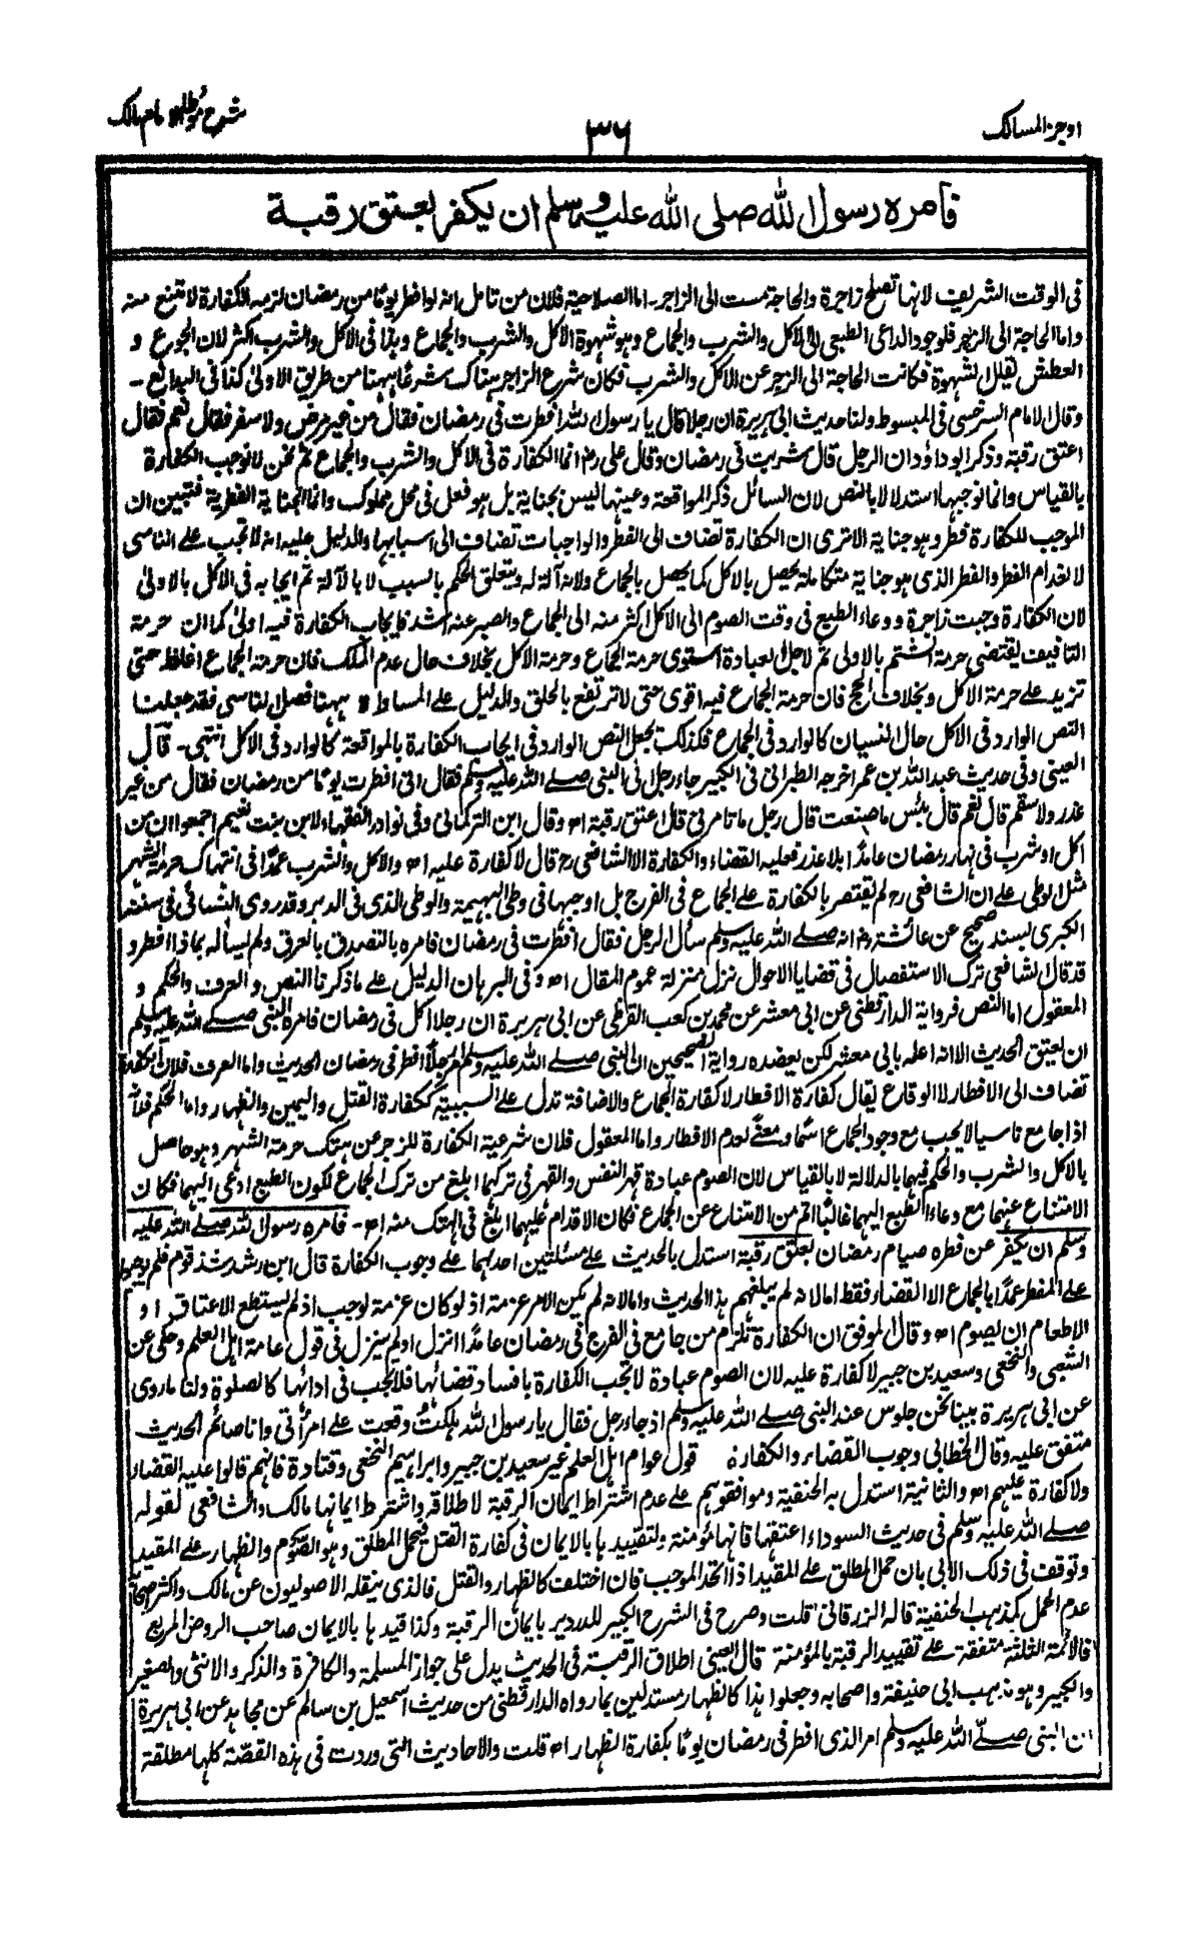 اوجز المسالك
٣٦
شرح موطا امام مالك
فامره رسول الله صلى الله عليه وسلم ان يكفر بعتق رقبة
فى الوقت الشريف لانها تصلح زاجرة والحاجة مست الى الزاجر۔ اما الصلاحية فلان من تامل انه لو افطر يوما من رمضان لزمه الكفارة لامتنع منه
واما الحاجة الى الزجر فلوجود الداعى الطبعى الى الاكل والشرب والجماع وهو شهوة الاكل والشرب والجماع وهذا فى الاكل والشرب اكثر لان الجوع و
العطش يقلل الشهوة فكانت الحاجة الى الزجر عن الاكل والشرب فكان شرع الزاجر هناك شرعا ههنا من طريق الاولى كذا فى البدائع۔
وقال الامام السرخسى فى المبسوط ولنا حديث ابى هريرة ان رجلا قال يا رسول الله افطرت فى رمضان فقال من غير مرض ولا سفر فقال نعم فقال
اعتق رقبة وذكر ابو داؤد ان الرجل قال شربت فى رمضان وقال على رض انما الكفارة فى الاكل والشرب والجماع ثم نحن لا نوجب الكفارة
بالقياس وانما نوجبها استدلالا بالنص لان السائل ذكر المواقعة وعينها ليس بجناية بل هو فعل فى محل مملوك وانما الجناية الفطر به فتبين ان
الموجب للكفارة فطر هو جناية الا ترى ان الكفارة تضاف الى الفطر والواجبات تضاف الى اسبابها والدليل عليه انه لا تجب على الناسى
لانعدام الفطر والفطر الذى هو جناية متكاملة يحصل بالاكل كما يحصل بالجماع ولانه آلة له ويتعلق الحكم بالسبب لا بالآلة ثم ايجابه فى الاكل بالاولى
لان الكفارة وجبت زاجرة ودعاء الطبع فى وقت الصوم الى الاكل اكثر منه الى الجماع والصبر عنه اشد فايجاب الكفارة فيه اولى كما ان حرمة
التافيف يقتضى حرمة الشتم بالاولى ثم لاجل العبادة استوى حرمة الجماع وحرمة الاكل بخلاف حال عدم الملك فان حرمة الجماع اغلظ حتى
تزيد على حرمة الاكل وبخلاف الحج فان حرمة الجماع فيه اقوى حتى لا ترتفع بالحلق والدليل على المساواة ههنا فصل الناسى فقد جعلنا
النص الوارد فى الاكل حال النسيان كالوارد فى الجماع فكذلك يجعل النص الوارد فى ايجاب الكفارة بالمواقعة كالوارد فى الاكل انتهى۔ قال
العينى وفى حديث عبد الله بن عمر اخرجه الطبرانى فى الكبير جاء رجل الى النبى صلى الله عليه وسلم فقال انى افطرت يوما من رمضان فقال من غير
عذر ولا سقم قال نعم قال بئس ما صنعت قال رجل ما تامرنى قال اعتق رقبة اھ وقال ابن التركمانى وفى نوادر الفقهاء لابن بنت نعيم اجمعوا ان من
اكل او شرب فى نهار رمضان عامدا بلا عذر فعليه القضاء والكفارة الا الشافعى رح قال لا كفارة عليه اھ والاكل والشرب عمدا فى انتهاك حرمة الشهر
مثل الوطى على ان الشافعى رح لم يقتصر بالكفارة على الجماع فى الفرج بل اوجبها فى وطى البهيمة والوطى الذى فى الدبر وقد روى النسائى فى سننه
الكبرى بسند صحيح عن عائشة رض انه صلى الله عليه وسلم سأل الرجل فقال افطرت فى رمضان فامره بالتصدق بالعرق ولم يسأله بماذا افطر و
قد قال الشافعى ترك الاستفصال فى قضايا الاحوال نزل منزلة عموم المقال اھ وفى البرهان الدليل على ما ذكرنا النص والعرف والحكم و
المعقول اما النص فرواية الدارقطنى عن ابى معشر عن محمد بن كعب القرظى عن ابى هريرة ان رجلا اكل فى رمضان فامره النبى صلى الله عليه وسلم
ان يعتق الحديث الا انه اعله بابى معشر لكن يعضده رواية الصحيحين ان النبى صلى الله عليه وسلم امر رجلا افطر فى رمضان الحديث واما العرف فلان الكفارة
تضاف الى الافطار لا الوقاع يقال كفارة الافطار لا كفارة الجماع والاضافة تدل على السببية ككفارة القتل واليمين والظهار واما الحكم فلانه
اذا جامع ناسيا لا يجب مع وجود الجماع اسما ومعنى لعدم الافطار واما المعقول فلان شرعية الكفارة للزجر عن هتك حرمة الشهر وهو حاصل
بالاكل والشرب والحكم فيهما بالدلالة لا بالقياس لان الصوم عبادة قهر النفس والقهر فى تركهما ابلغ من ترك الجماع لكون الطبع ادعى اليهما فكان
الامتناع عنهما مع دعاء الطبع اليهما غالبا اتم من الامتناع عن الجماع فكان الاقدام عليهما ابلغ فى الهتك منه اھ۔ فامره رسول الله صلى الله عليه
وسلم ان يكفر عن فطره صيام رمضان بعتق رقبة استدل بالحديث على مسئلتين احدهما على وجوب الكفارة قال ابن رشد شذ قوم فلم يوجبوا
على المفطر عمدا بالجماع الا القضاء فقط اما لانه لم يبلغهم هذا الحديث واما لانه لم يكن الامر عزمة اذ لو كان عزمة لوجب اذ لم يستطع الاعتاق او
الاطعام ان يصوم اھ وقال الموفق ان الكفارة تلزم من جامع فى الفرج فى رمضان عامدا انزل او لم ينزل فى قول عامة اهل العلم وحكى عن
الشعبى والنخعى وسعيد بن جبير لا كفارة عليه لان الصوم عبادة لا تجب الكفارة بافساد قضائها فلا يجب فى ادائها كالصلوة ولنا ما روى
عن ابى هريرة بينا نحن جلوس عند النبى صلى الله عليه وسلم اذ جاء رجل فقال يا رسول الله هلكت وقعت على امرأتى وانا صائم الحديث
متفق عليه وقال الخطابى وجوب القضاء والكفارة قول عوام اهل العلم غير سعيد بن جبير وابراهيم النخعى وقتادة فانهم قالوا عليه القضاء
ولا كفارة عليهم اھ والثانية استدل به الحنفية وموافقوهم على عدم اشتراط ايمان الرقبة لاطلاقه واشترط ايمانها مالك والشافعى لقوله
صلى الله عليه وسلم فى حديث السوداء اعتقها فانها مؤمنة ولتقييدها بالايمان فى كفارة القتل فيحمل المطلق وهو الصوم والظهار على المقيد
وتوقف فى ذلك الابى بان حمل المطلق على المقيد اذا اتحد الموجب فان اختلف كالظهار والقتل فالذى ينقله الاصوليون عن مالك واكثر اصحابه
عدم الحمل كمذهب الحنفية قاله الزرقانى قلت وصرح فى الشرح الكبير للدردير بايمان الرقبة وكذا قيدها بالايمان صاحب الروض المربع
فالائمة الثلثة متفقة على تقييد الرقبة بالمؤمنة قال العينى اطلاق الرقبة فى الحديث يدل على جواز المسلمة والكافرة والذكر والانثى والصغير
والكبير وهو مذهب ابى حنيفة واصحابه وجعلوا هذا كالظهار مستدلين بما رواه الدارقطنى من حديث اسمعيل بن سالم عن مجاهد عن ابى هريرة
ان النبى صلى الله عليه وسلم امر الذى افطر فى رمضان يوما بكفارة الظهار اھ قلت والاحاديث التى وردت فى هذه القصة كلها مطلقة